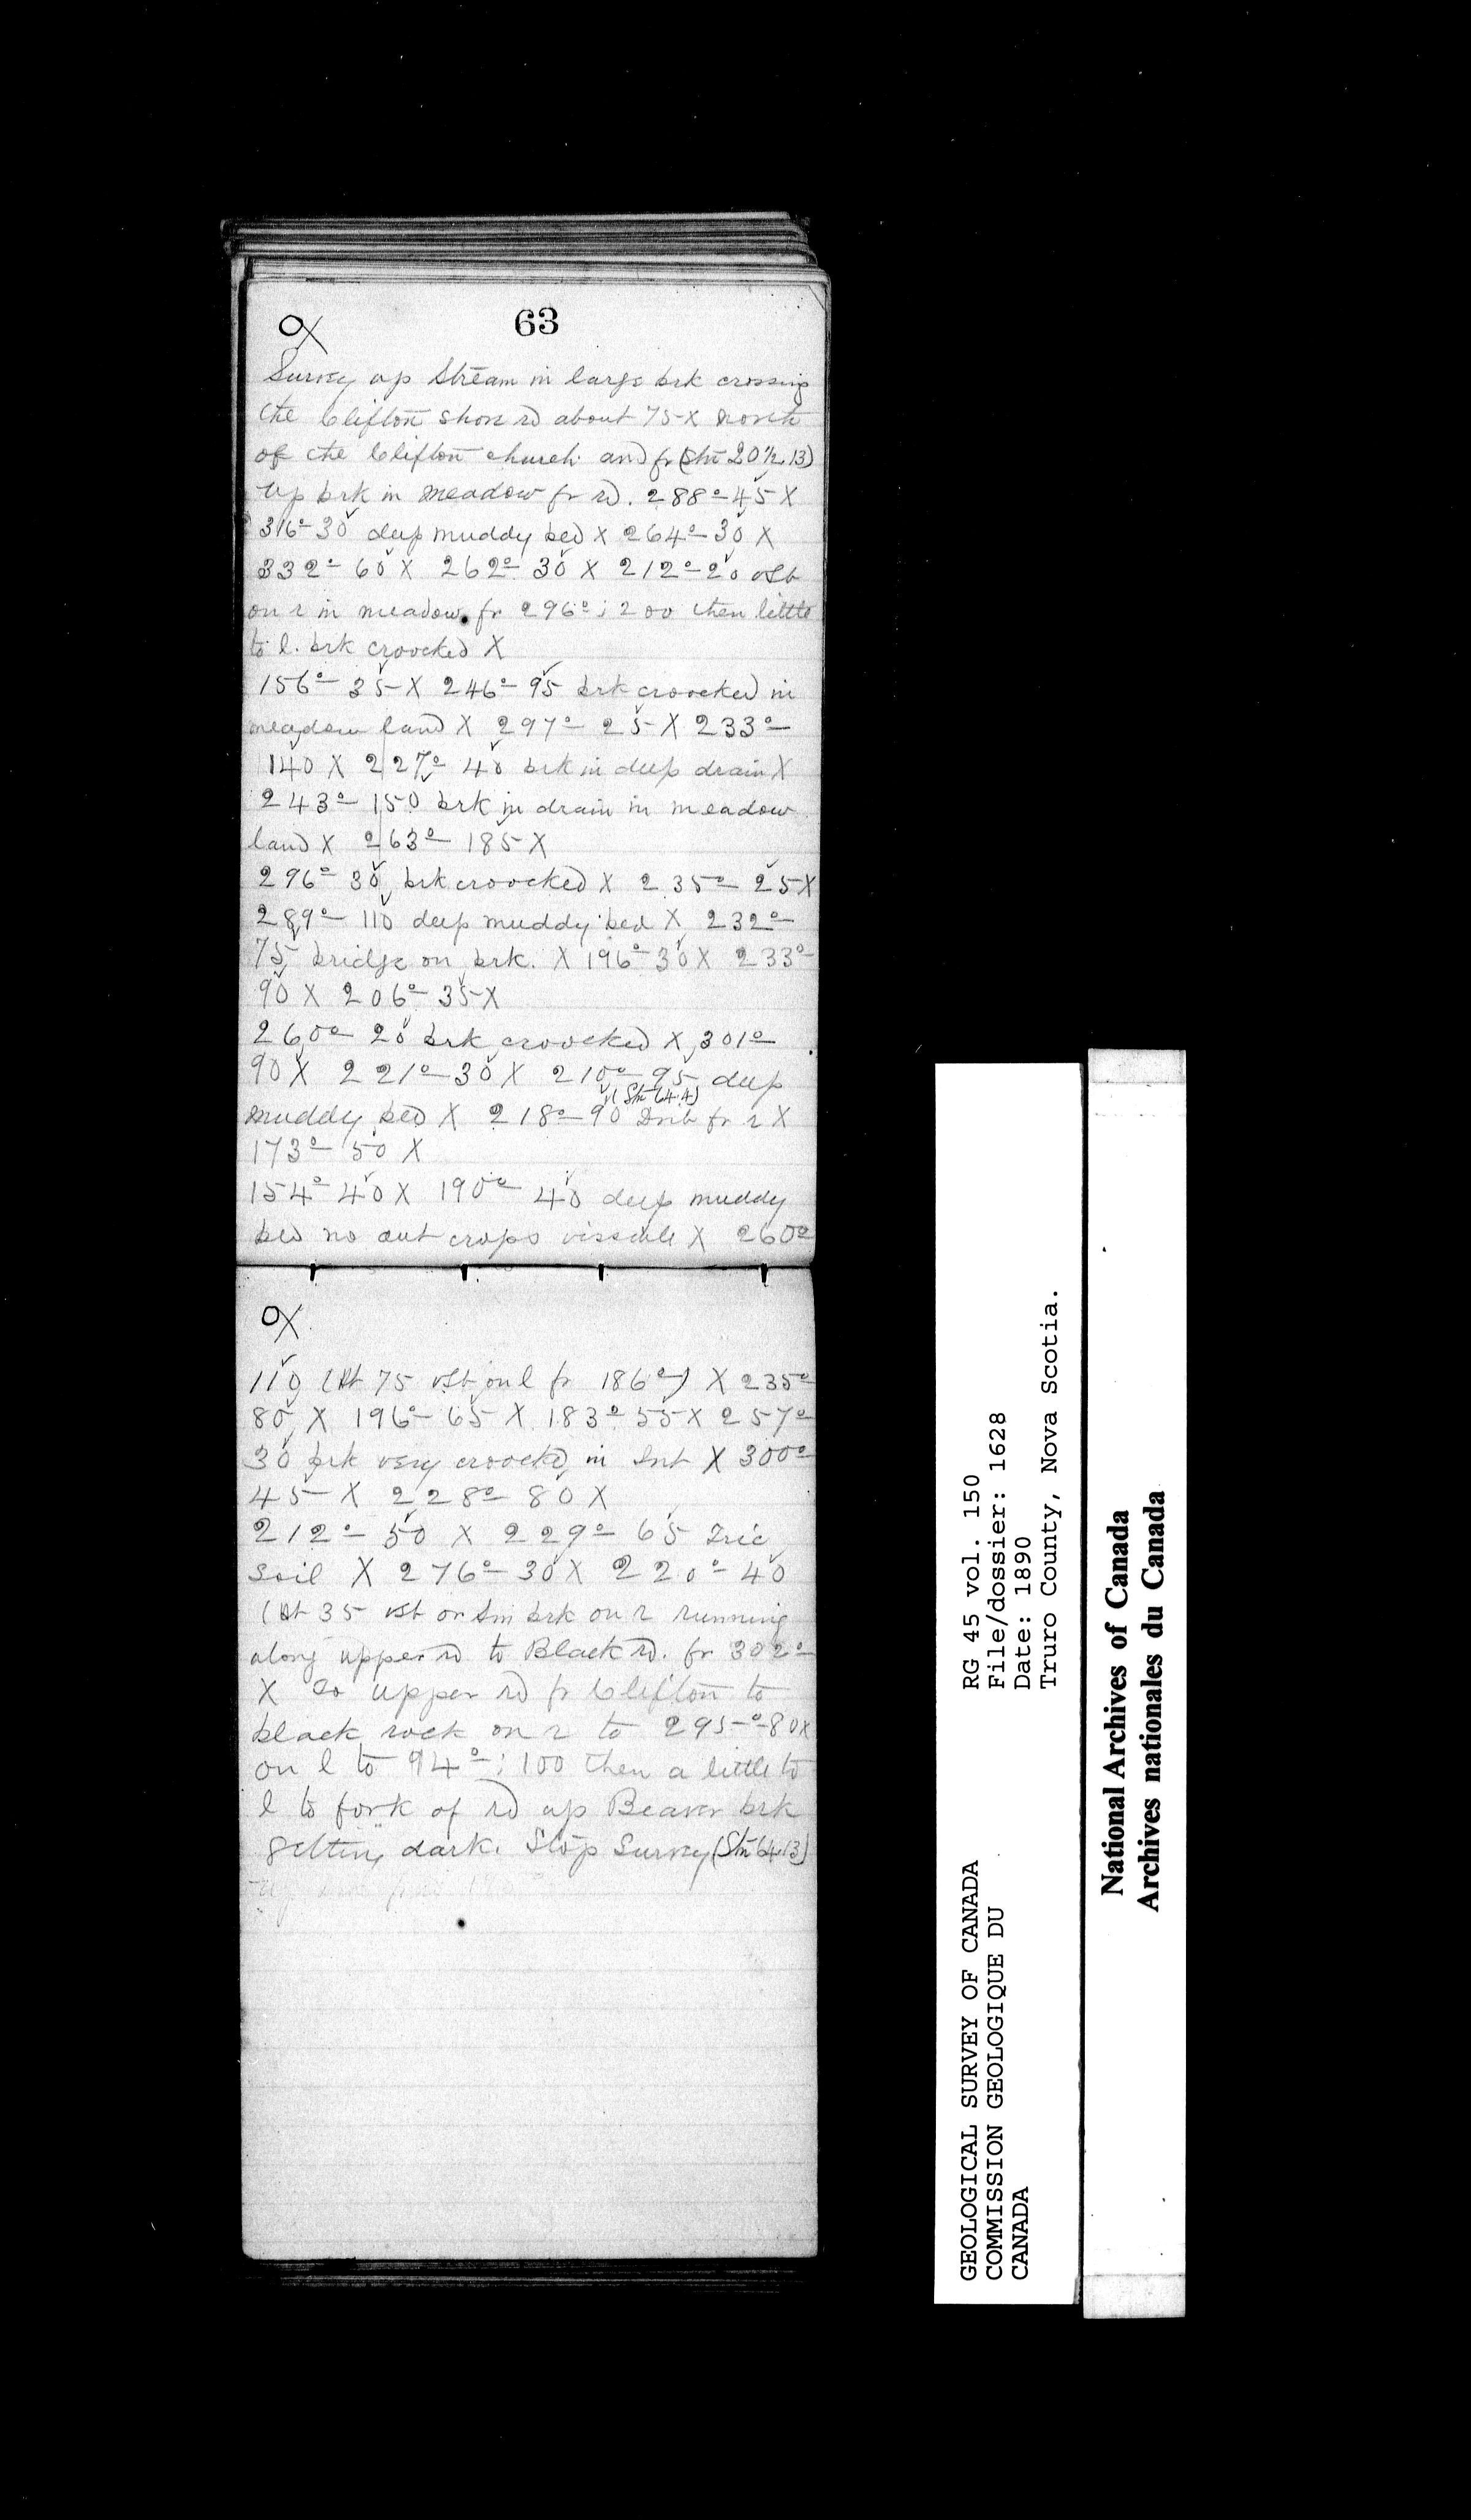 63
OX
Survey up stream in large brk crossing
the Clifton shore rd about 75 X north
of the Clifton church and fr (Stn 20 1/2.13)
up brk in meadow fr rd. 288°- 45 X
316°- 30 deep muddy bed X 264°- 30 X
332°- 60 X 262°- 30 X 212°- 20 vSb
on r in meadow fr 296°; 200 then little
to l. brk croocked X
156°- 35 X 246°- 95 brk croocked in
meadow land X 297°- 25 X 233°-
140 X 227°- 40 brk in deep drain X
243°- 150 brk in drain in meadow
land X 263°- 185 X
296°- 30 brk croocked X 235°- 25 X
289°- 110 deep muddy bed X 232°-
75 bridge on brk. X 196°- 30 X 233°-
90 X 206°- 35 X
260°- 20 brk croocked X 301°-
90 X 221°- 30 X 210°- 95 deep
(Stn 64.4)
muddy bed X 218°- 90 fr r X
173°- 50 X
154°- 40 X 190°- 40 deep muddy
bed no out crops vissible X 260°
OX
110 (At 75 vSb on l fr 186°-) X 235°-
80 X 196°- 65 X 183°- 55 X 257°-
30 brk very croocked in Int X 300°-
45 X 228°- 80 X
212°- 50 X 229°- 65 Tric
Soil X 276°- 30 X 220°- 40
(At 35 vSb or Sm brk on r running
along upper rd to Black rd. fr 302°-
X to upper rd fr Clifton to
black rock on r to 295°- 80 X
on l to 94°-; 100 then a little to
l to fork of rd up Beaver brk
getting dark. Stop Survey (Stn 64.13)
GEOLOGICAL SURVEY OF CANADA
COMMISSION GEOLOGIQUE DU
CANADA
RG 45 vol. 150
File/dossier: 1628
Date: 1890
Truro County, Nova Scotia.
National Archives of Canada
Archives nationales du Canada